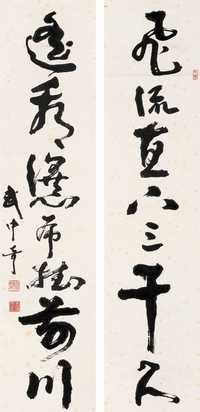 飛流直下三千尺
遥看瀑布挂前川
武中奇